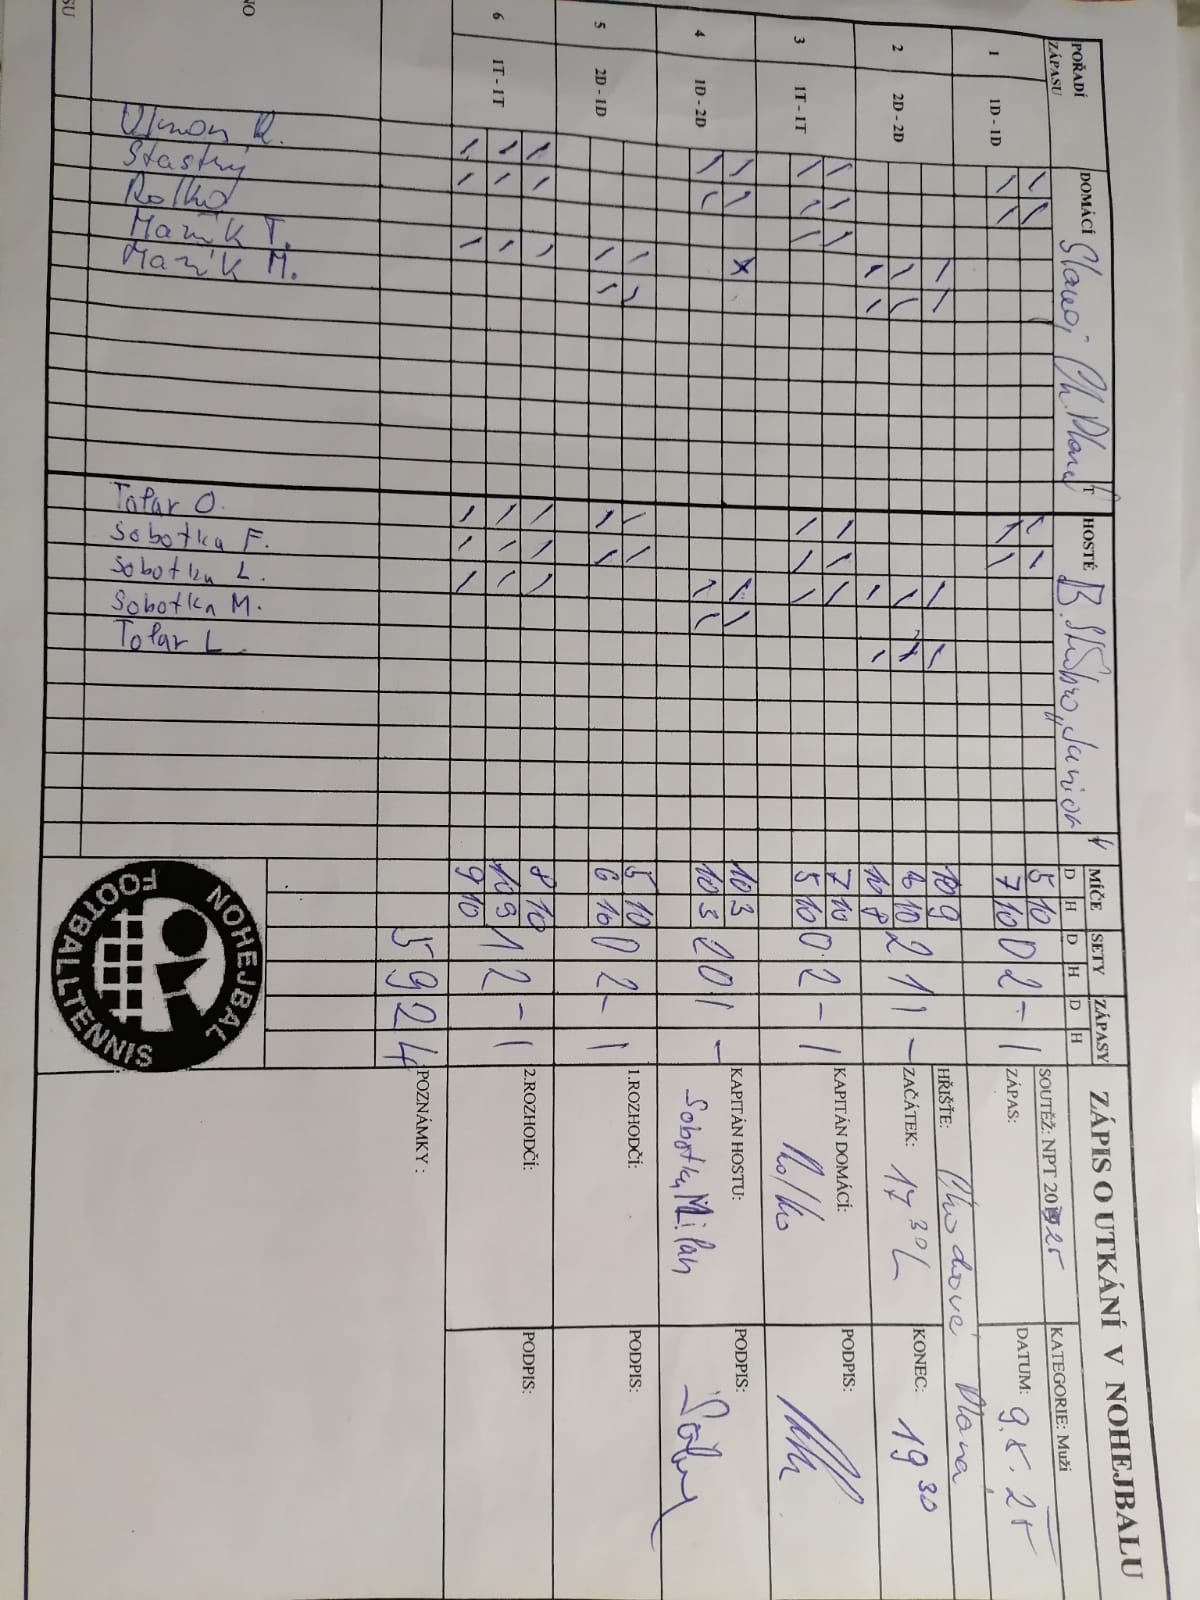 ZÁPIS O UTKÁNÍ V NOHEJBALU
SOUTĚŽ: NPT 2025
KATEGORIE: Muži
ZÁPAS:
DATUM: 9.5.25
HŘIŠTĚ: Chodová Planá
ZAČÁTEK: 17 30
KONEC: 19 30
KAPITÁN DOMÁCÍ: Rolko
PODPIS:
KAPITÁN HOSTU: Sobotka Milan
PODPIS:
1.ROZHODČÍ:
PODPIS:
2.ROZHODČÍ:
PODPIS:
POZNÁMKY:
POŘADÍ ZÁPASU DOMÁCÍ Slavoj Ch. Planá HOSTÉ MÍČE SETY ZÁPASY
D H D H D H
1 1D - 1D 5 10 0 2 - 1
7 10
2 2D - 2D 10 9 2 1 1 -
6 10
10 8
3 1T - 1T 7 10 0 2 - 1
5 10
4 1D - 2D 10 3 2 0 1 -
10 3
5 2D - 1D 5 10 0 2 - 1
6 10
6 1T - 1T 8 10 1 2 - 1
10 9
9 10
5 9 2 4
Šťastný
Rolko
Mařík T.
Mařík M.
Tolar O.
Sobotka F.
Sobotka L.
Sobotka M.
Tolar L.
NOHEJBAL
FOOTBALLTENNIS